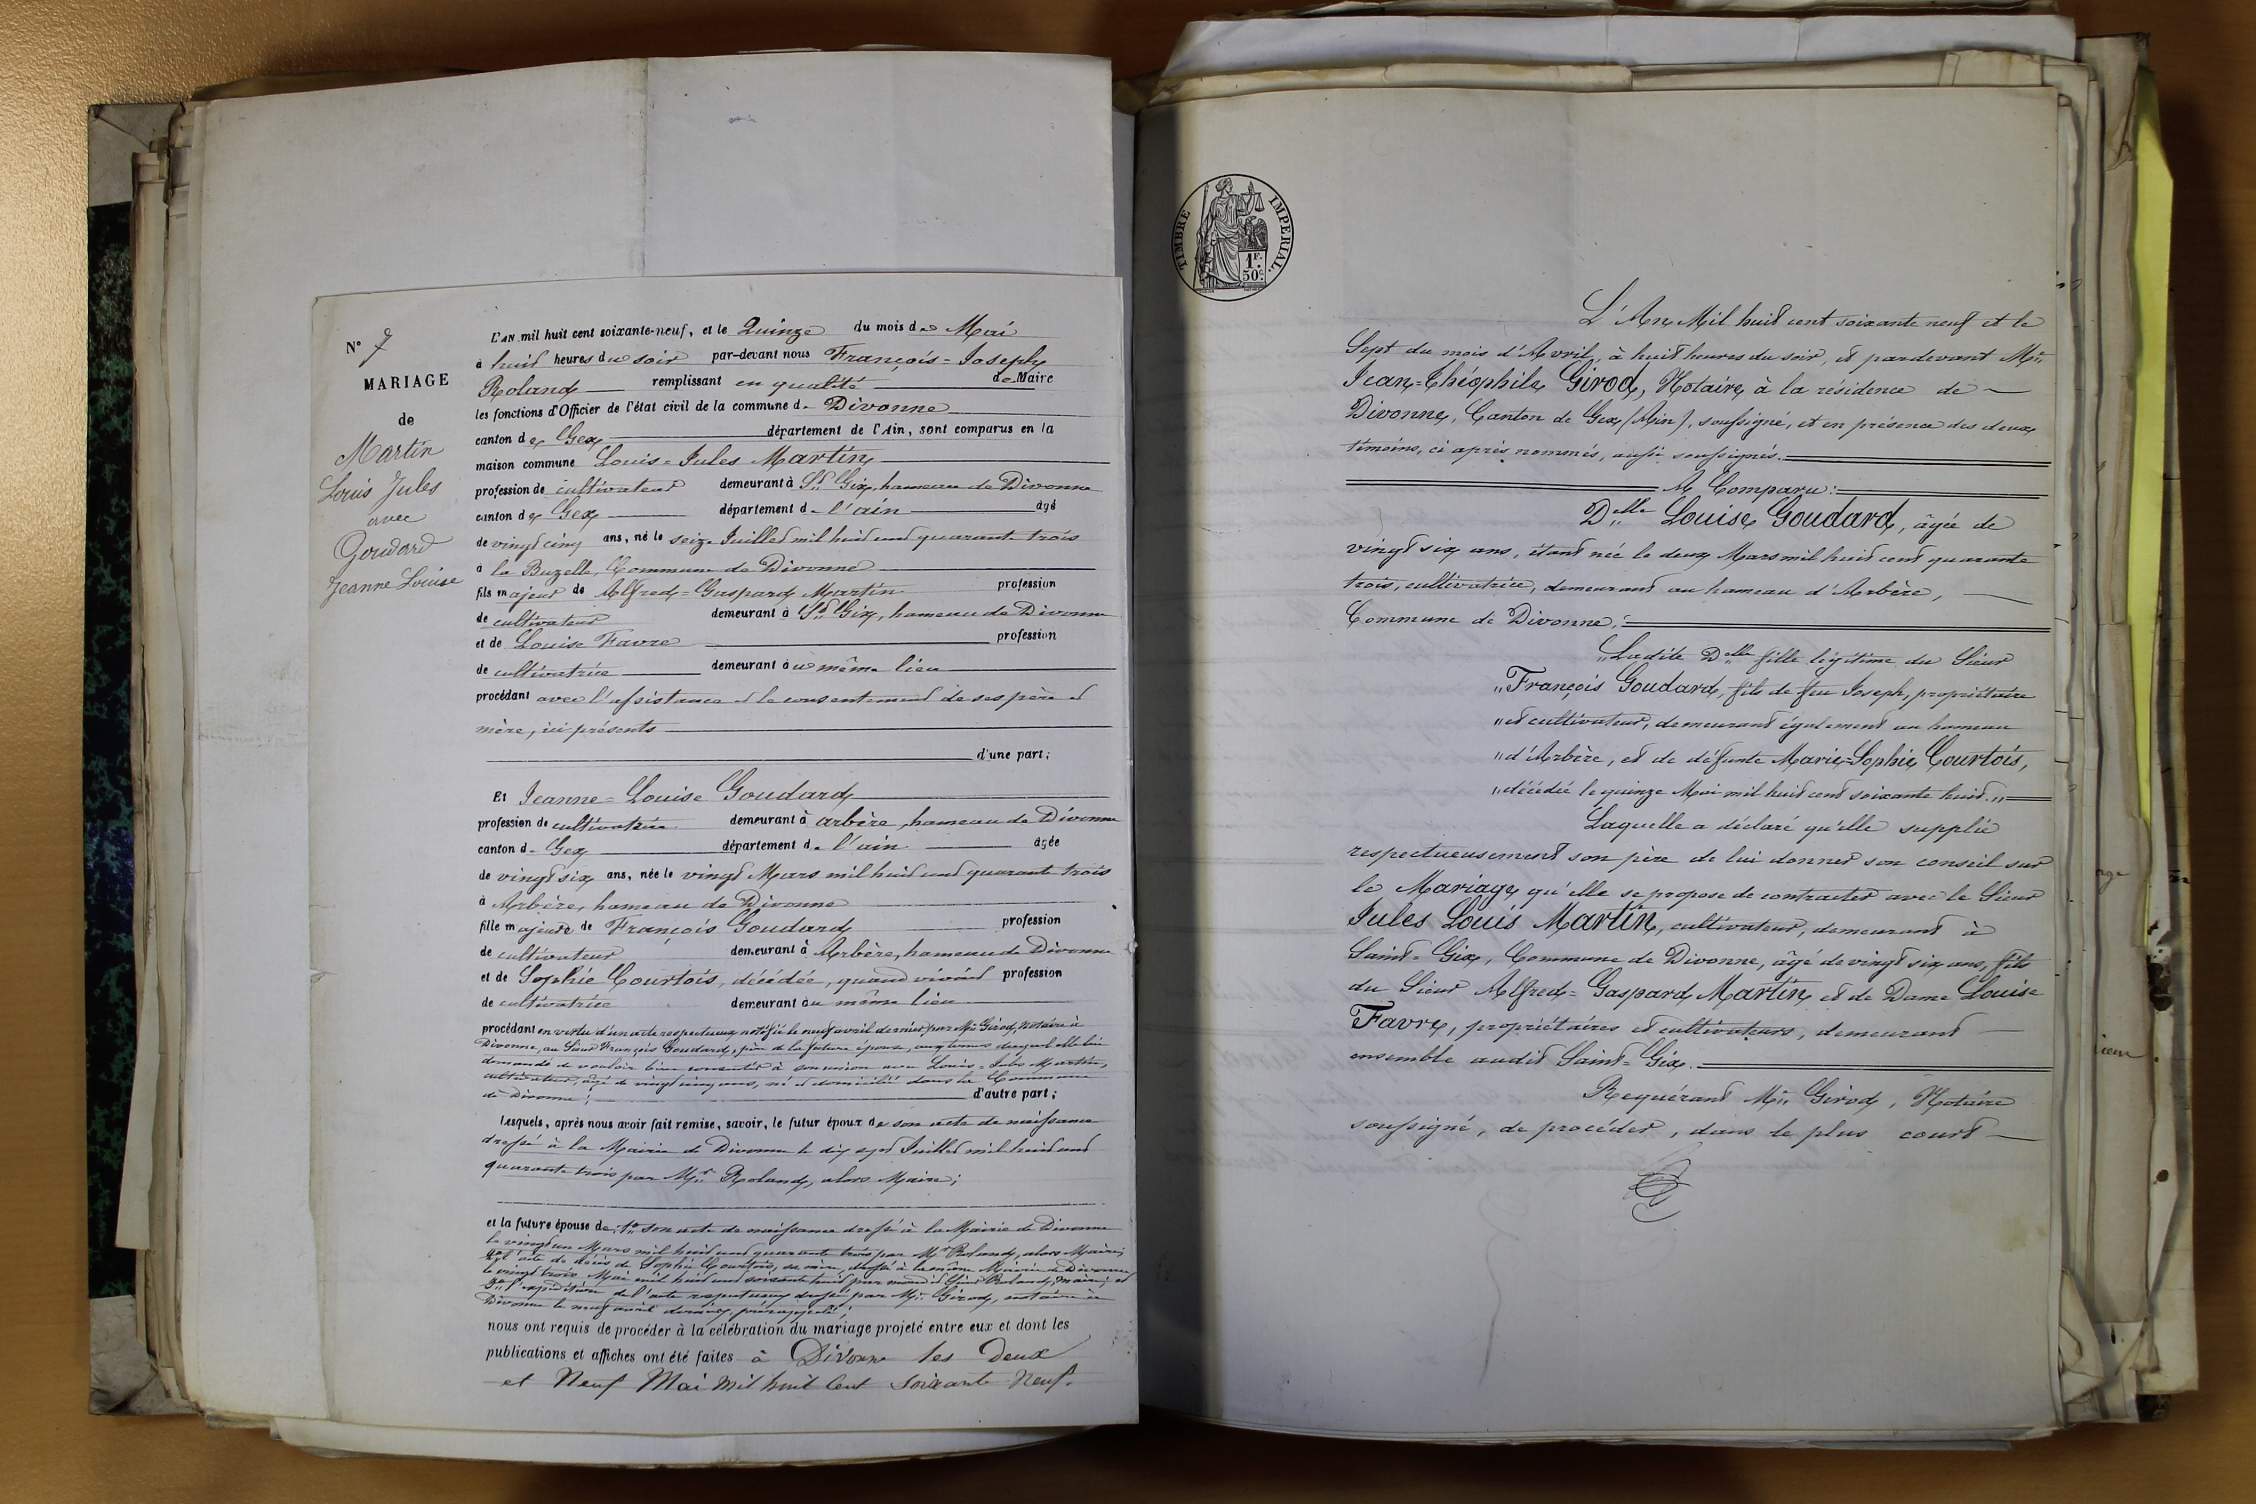 N° 7
MARIAGE
de
Martin
Louis Jules
avec
Goudard
Jeanne Louise
L'AN mil huit cent soixante-neuf, et le Quinze du mois de Mai
à huit heures du soir par-devant nous François=Joseph
Roland remplissant en qualité de Maire
les fonctions d'Officier de l'état civil de la commune de Divonne
canton de Gex département de l'Ain, sont comparus en la
maison commune Louis=Jules Martin
profession de cultivateur demeurant à St Gix, hameau de Divonne
canton de Gex département de l'ain âgé
de vingt cinq ans, né le seize Juillet mil huit cent quarante trois
à la Buzelle, Commune de Divonne
fils majeur de Alfred=Gaspard Martin profession
de cultivateur demeurant à St Gix, hameau de Divonne
et de Louise Favre profession
de cultivatrice demeurant au même lieu
procédant avec l'assistance et le consentement de ses père et
mère, ici présents
d'une part;
Et Jeanne=Louise Goudard
profession de cultivatrice demeurant à arbère, hameau de Divonne
canton de Gex département de l'ain âgée
de vingt six ans, née le vingt Mars mil huit cent quarante trois
à Arbère, hameau de Divonne
fille majeure de François Goudard profession
de cultivateur demeurant à Arbère, hameau de Divonne
et de Sophie Courtois, décédée, quand vivait profession
de cultivatrice demeurant au même lieu
procédant en vertu d'un acte respectueux notifié le neuf avril dernier par Me Girod, Notaire à
Divonne, au Sieur François Goudard, père de la future épouse, aux termes duquel elle lui
demande de vouloir bien consentir à son union avec Louis=Jules Martin,
cultivateur, âgé de vingt cinq ans, né et domicilié dans la Commune
de Divonne; d'autre part;
Lesquels, après nous avoir fait remise, savoir, le futur époux de son acte de naissance
dressé à la Mairie de Divonne le dix sept Juillet mil huit cent
quarante trois par Mr Roland, alors Maire;
et la future épouse de: 1° son acte de naissance dressé à la Mairie de Divonne
le vingt un Mars mil huit cent quarante trois par Mr Roland, alors Maire;
2° l'acte de décès de Sophie Courtois, sa mère, dressé à la même Mairie de Divonne
le vingt trois Mai mil huit cent soixante huit par mondit Sieur Roland, maire; et
3° l'expédition de l'acte respectueux dressé par Me Girod, notaire à
Divonne le neuf avril dernier, prérappelé;
nous ont requis de procéder à la célébration du mariage projeté entre eux et dont les
publications et affiches ont été faites à Divonne les Deux
et Neuf Mai mil huit Cent soixante Neuf.
TIMBRE IMPERIAL.
1F.
50c.
L'An Mil huit cent soixante neuf et le
Sept du mois d'Avril, à huit heures du soir, et pardevant Me
Jean=Théophile Girod, Notaire à la résidence de
Divonne, Canton de Gex (Ain), soussigné, et en présence des deux
témoins, ci après nommés, aussi soussignés.
A Comparu:
Delle Louise Goudard, âgée de
vingt six ans, étant née le deux Mars mil huit cent quarante
trois, cultivatrice, demeurant au hameau d'Arbère,
Commune de Divonne;
"Ladite Delle fille légitime du Sieur
"François Goudard, fils de feu Joseph, propriétaire
"et cultivateur, demeurant également au hameau
"d'Arbère, et de défunte Marie=Sophie Courtois,
"décédée le quinze Mai mil huit cent soixante huit."
Laquelle a déclaré qu'elle supplie
respectueusement son père de lui donner son conseil sur
le Mariage qu'elle se propose de contracter avec le Sieur
Jules Louis Martin, cultivateur, demeurant à
Saint=Gix, Commune de Divonne, âgé de vingt six ans, fils
du Sieur Alfred=Gaspard Martin et de Dame Louise
Favre, propriétaires et cultivateurs, demeurant
ensemble audit Saint=Gix.
Requérant Me Girod, Notaire
soussigné, de procéder, dans le plus court